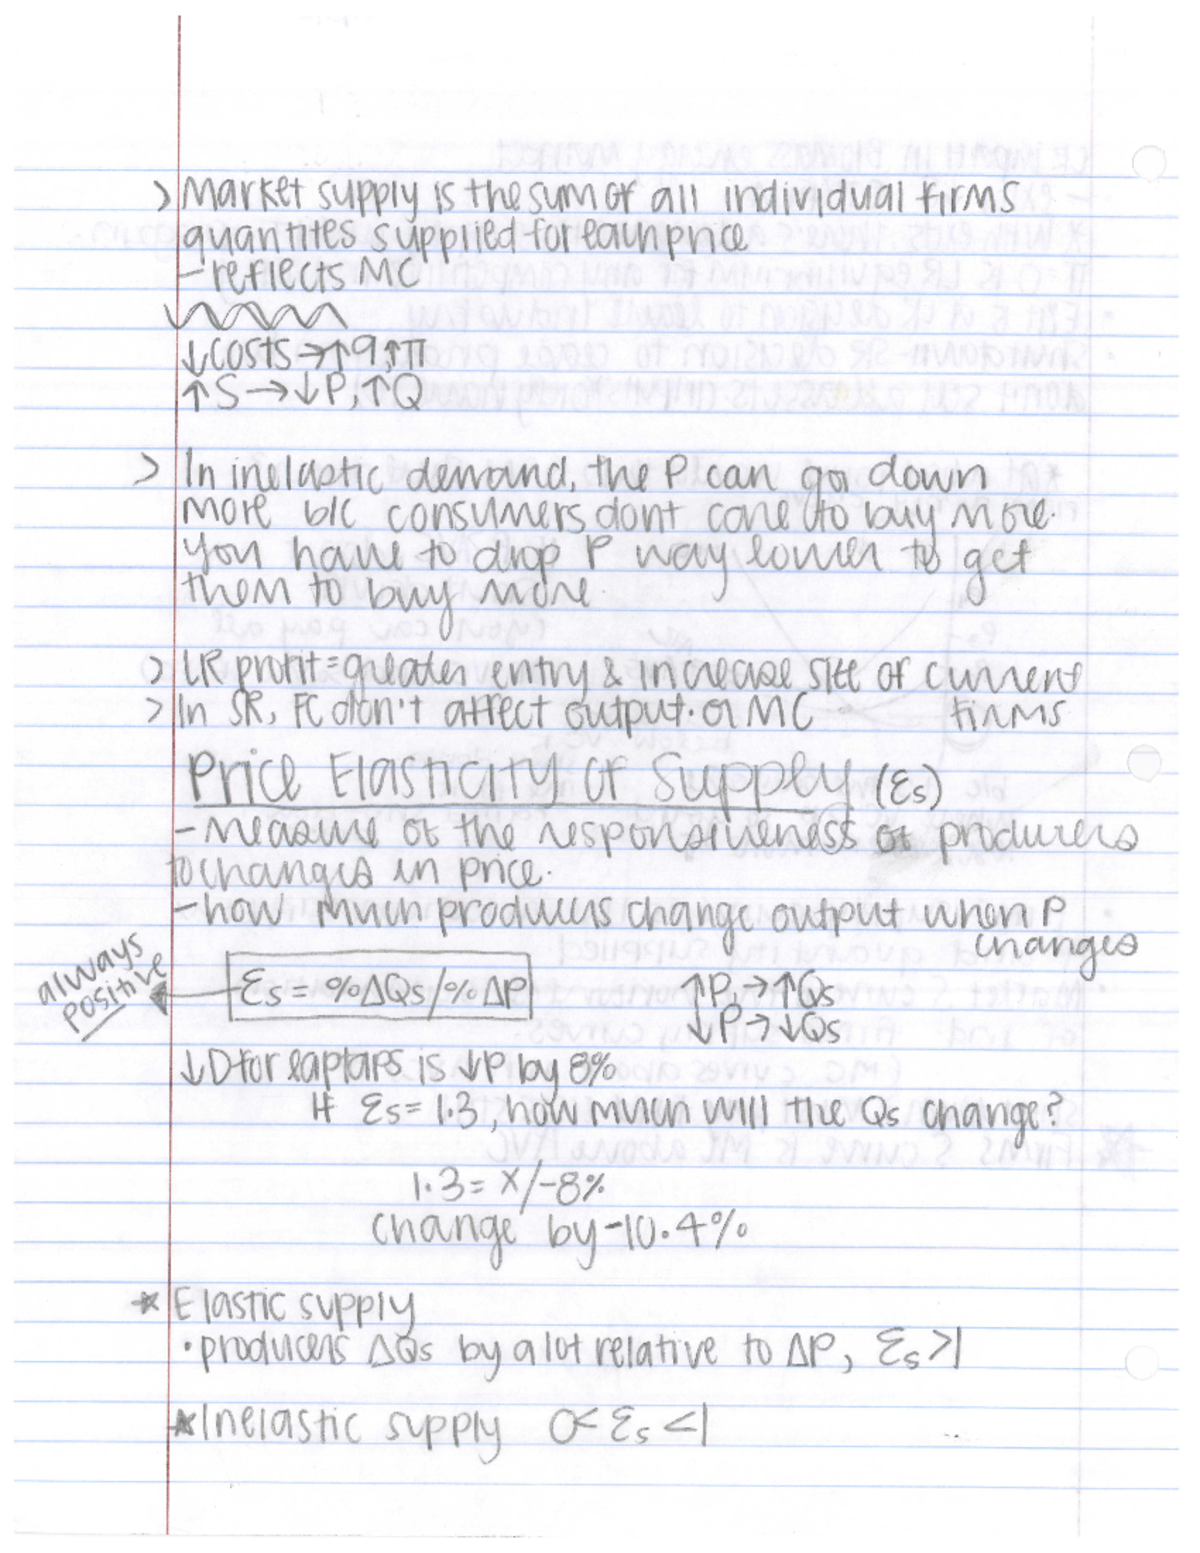 > Market supply is the sum of all individual firms
quantites supplied for each price
- reflects MC
↓costs→↑q,↑π
↑S→↓P,↑Q
> In inelastic demand, the P can go down
more b/c consumers dont care to buy more.
You have to drop P way lower to get
them to buy more.
> LR profit = greater entry & increase size of current
firms
> In SR, FC don't affect output or MC
Price Elasticity of Supply (Ɛs)
- measure of the responsiveness of producers
to changes in price.
- how much producers change output when P
changes
always
positive
Ɛs = %ΔQs/%ΔP
↑P→↑Qs
↓P→↓Qs
↓D for laptops is ↓P by 8%
If Ɛs = 1.3, how much will the Qs change?
1.3 = x/-8%
change by -10.4%
* Elastic supply
• producers ΔQs by a lot relative to ΔP, Ɛs>1
* Inelastic supply 0< Ɛs <1